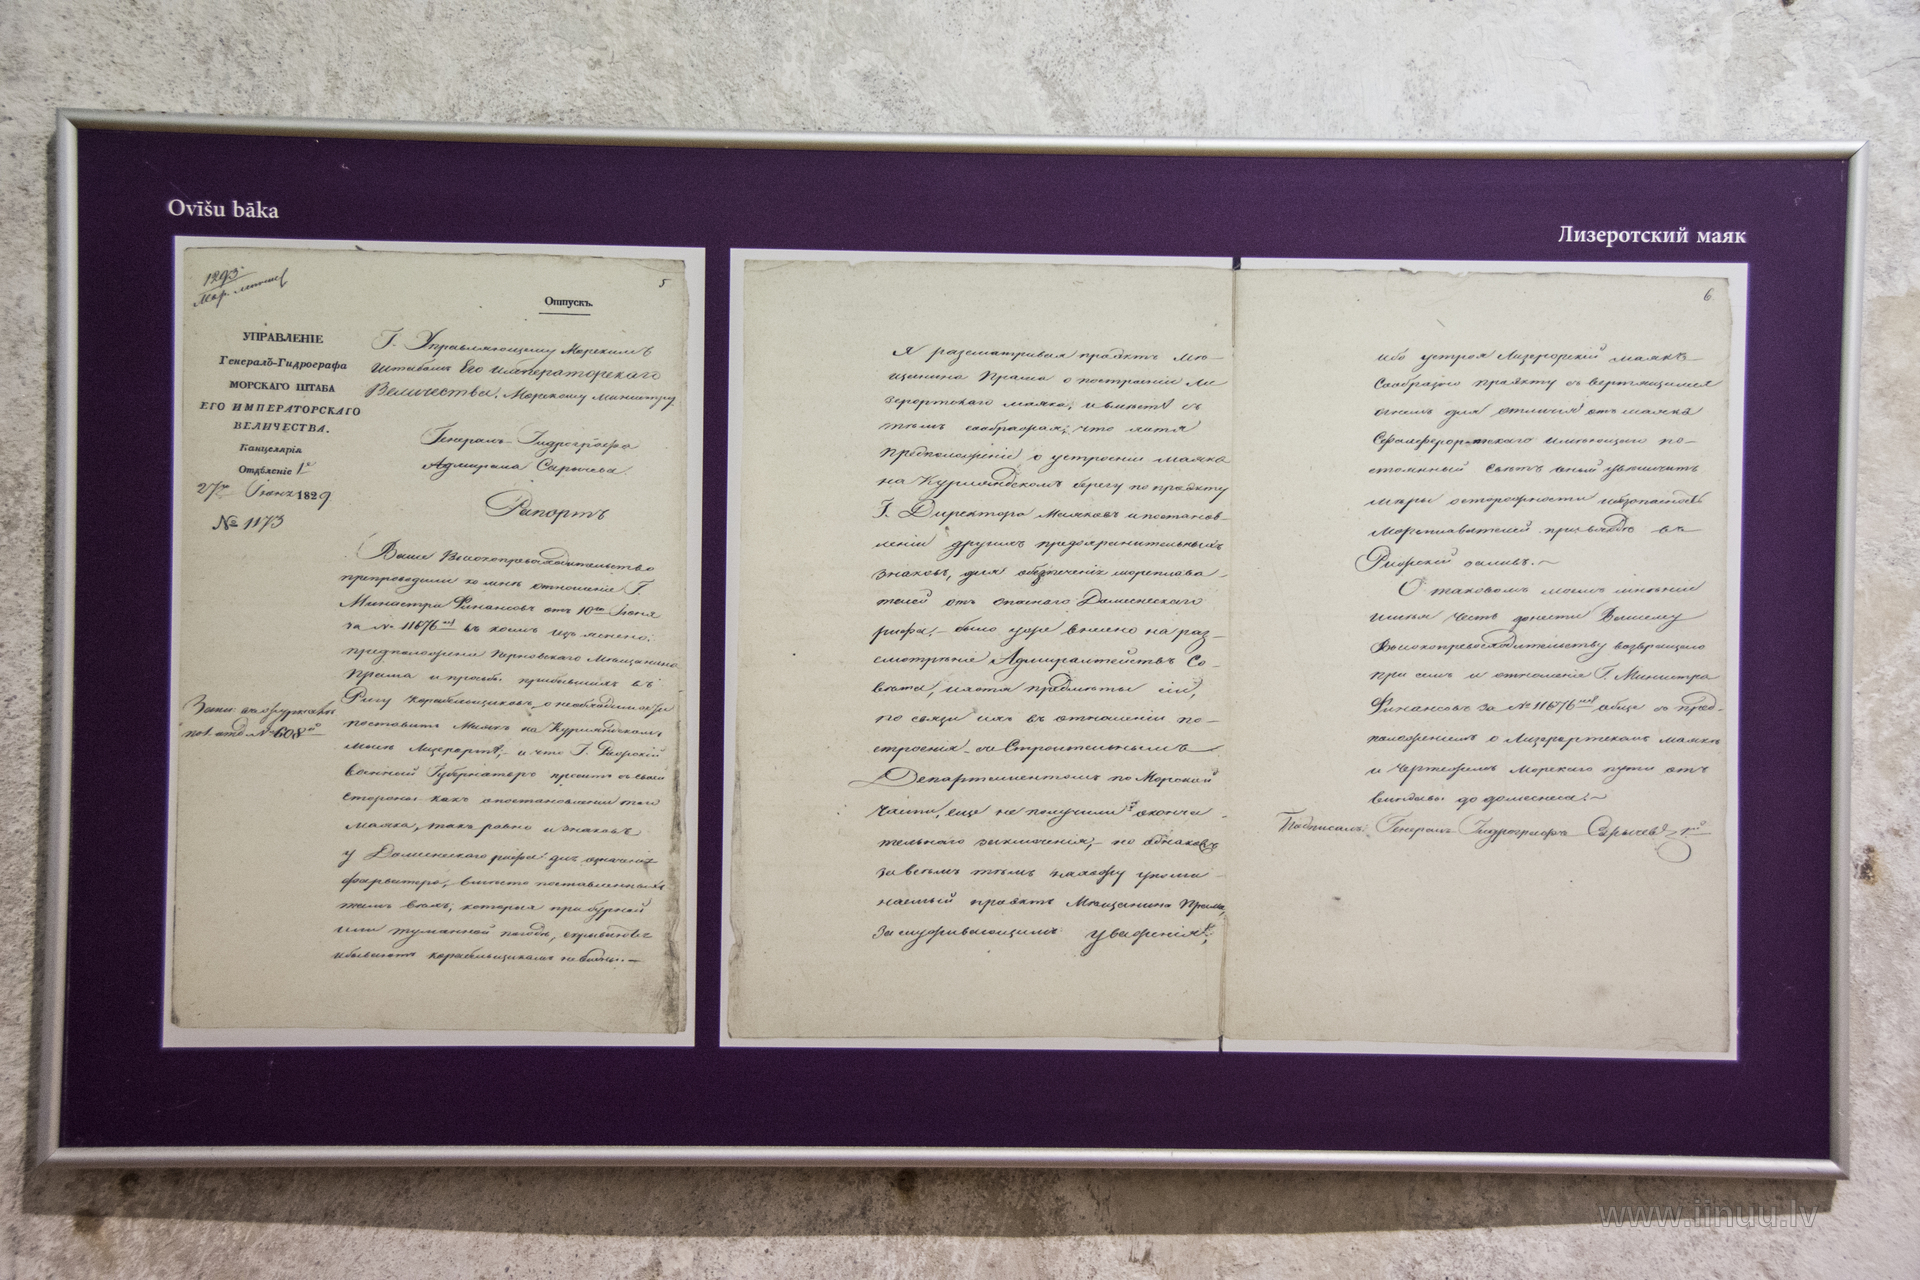 Ovīšu bāka
Лизеротский маяк
1293
5
Отпускъ.
УПРАВЛЕНІЕ
Генералъ-Гидрографа
МОРСКАГО ШТАБА
ЕГО ИМПЕРАТОРСКАГО
ВЕЛИЧЕСТВА.
Канцелярія
Отдѣленіе 1е
27го Іюня 1829
№ 1173
Г. Управляющему Морскимъ
Штабомъ Его Императорскаго
Величества, Морскому Министру.
Генералъ-Гидрографа
Адмирала Сарычева
Рапортъ
Ваше Высокопревосходительство
препроводили ко мнѣ отношеніе Г.
Министра Финансовъ отъ 10го Іюня
за № 11676 въ коемъ изъяснено:
предположеніе Перновскаго Мѣщанина
Прама и просьбы прибывшихъ въ
Ригу корабельщиковъ, о необходимости
поставить Маякъ на Курляндскомъ
мысѣ Лизерортѣ, и что Г. Рижскій
военный Губернаторъ проситъ съ своей
стороны какъ о постановленіи
маяка, такъ равно и знаковъ
у Доменескаго рифа для означенія
фарватера, вмѣсто поставленныхъ
тамъ вѣхъ, которыя при бурной
или туманной погодѣ, скрываются
и бываютъ корабельщикамъ не видны.—
№ 608
Я разсматривая проэктъ Мѣ-
щанина Прама о построеніи Ли
зерортскаго маяка, и вмѣстѣ съ
тѣмъ соображая, что хотя
предположеніе о устроеніи маяка
на Курляндскомъ берегу по проэкту
Г. Директора Маяковъ и постанов-
леніи другихъ предохранительныхъ
знаковъ, для обезпеченія мореплава-
телей отъ опаснаго Доменескаго
рифа,— было уже внесено на раз-
смотрѣніе Адмиралтействъ Со-
вѣта, и хотя предметы сіи,
по связи ихъ въ отношеніи по-
строенія съ Строительнымъ
Департаментомъ по Морской
части, еще не получили оконча-
тельнаго заключенія,— но однакожъ
за всѣмъ тѣмъ нахожу упоми-
наемый проэктъ Мѣщанина Прама,
заслуживающимъ уваженія;
6
ибо устроя Лизерортскій маякъ
сообразно проэкту съ вертящимся
огнемъ для отличія отъ маяка
имѣющаго по-
стоянный свѣтъ, оный увеличитъ
мѣры осторожности и безопасность
мореплавателей при входѣ въ
Рижскій заливъ.—
О таковомъ моемъ мнѣніи
имѣя честь донести Вашему
Высокопревосходительству возвращаю
при семъ и отношеніе Г. Министра
Финансовъ за № 11676 обще съ пред-
положеніемъ о Лизерортскомъ маякѣ
и чертежемъ Морскаго пути отъ
Виндавы до Доменеса.—
Подписалъ: Генералъ-Гидрографъ Сарычевъ
www.iinuu.lv